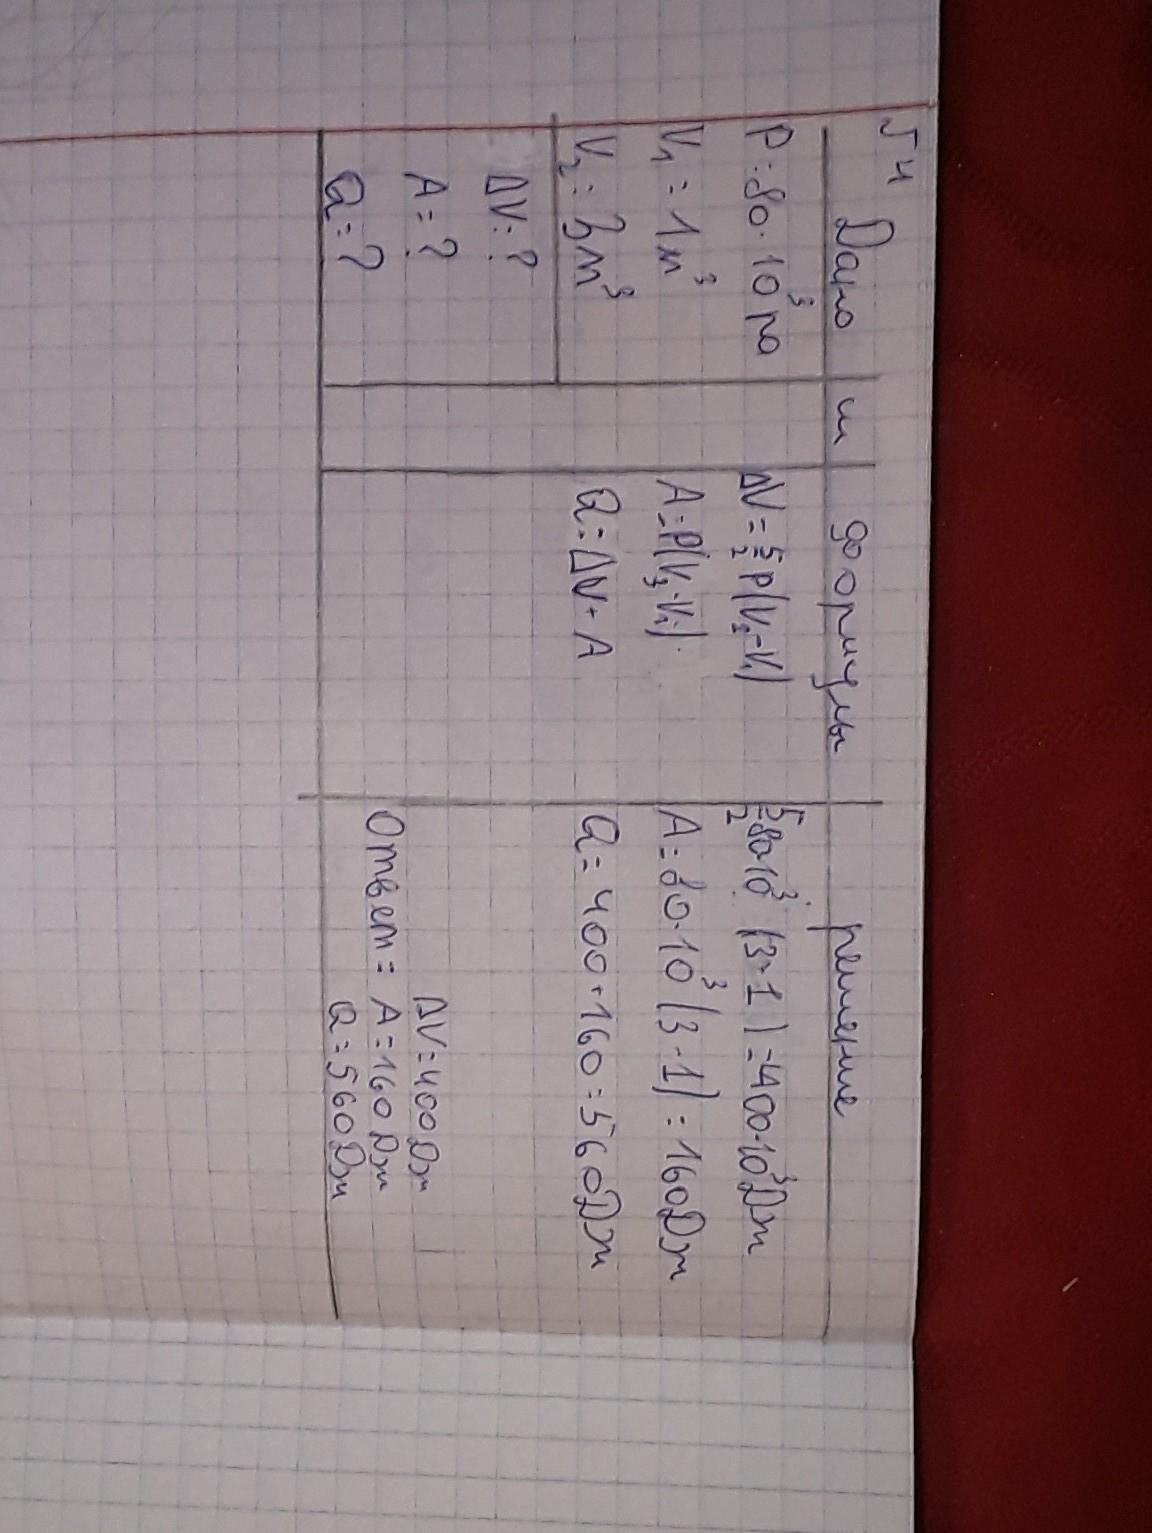 √ч
Дано и формулы решение
P = 80·10³ па
V₁ = 1 м³
V₂ = 3м³
ΔV = ?
A = ?
Q = ?
ΔV = 5/2 P(V₂-V₁)
A = P(V₂-V₁)
Q = ΔV + A
5/2 80·10³ (3-1) = 400·10³Дж
A = 80·10³ (3-1) = 160Дж
Q = 400 + 160 = 560Дж
ΔV = 400Дж
Ответ = A = 160Дж
Q = 560Дж